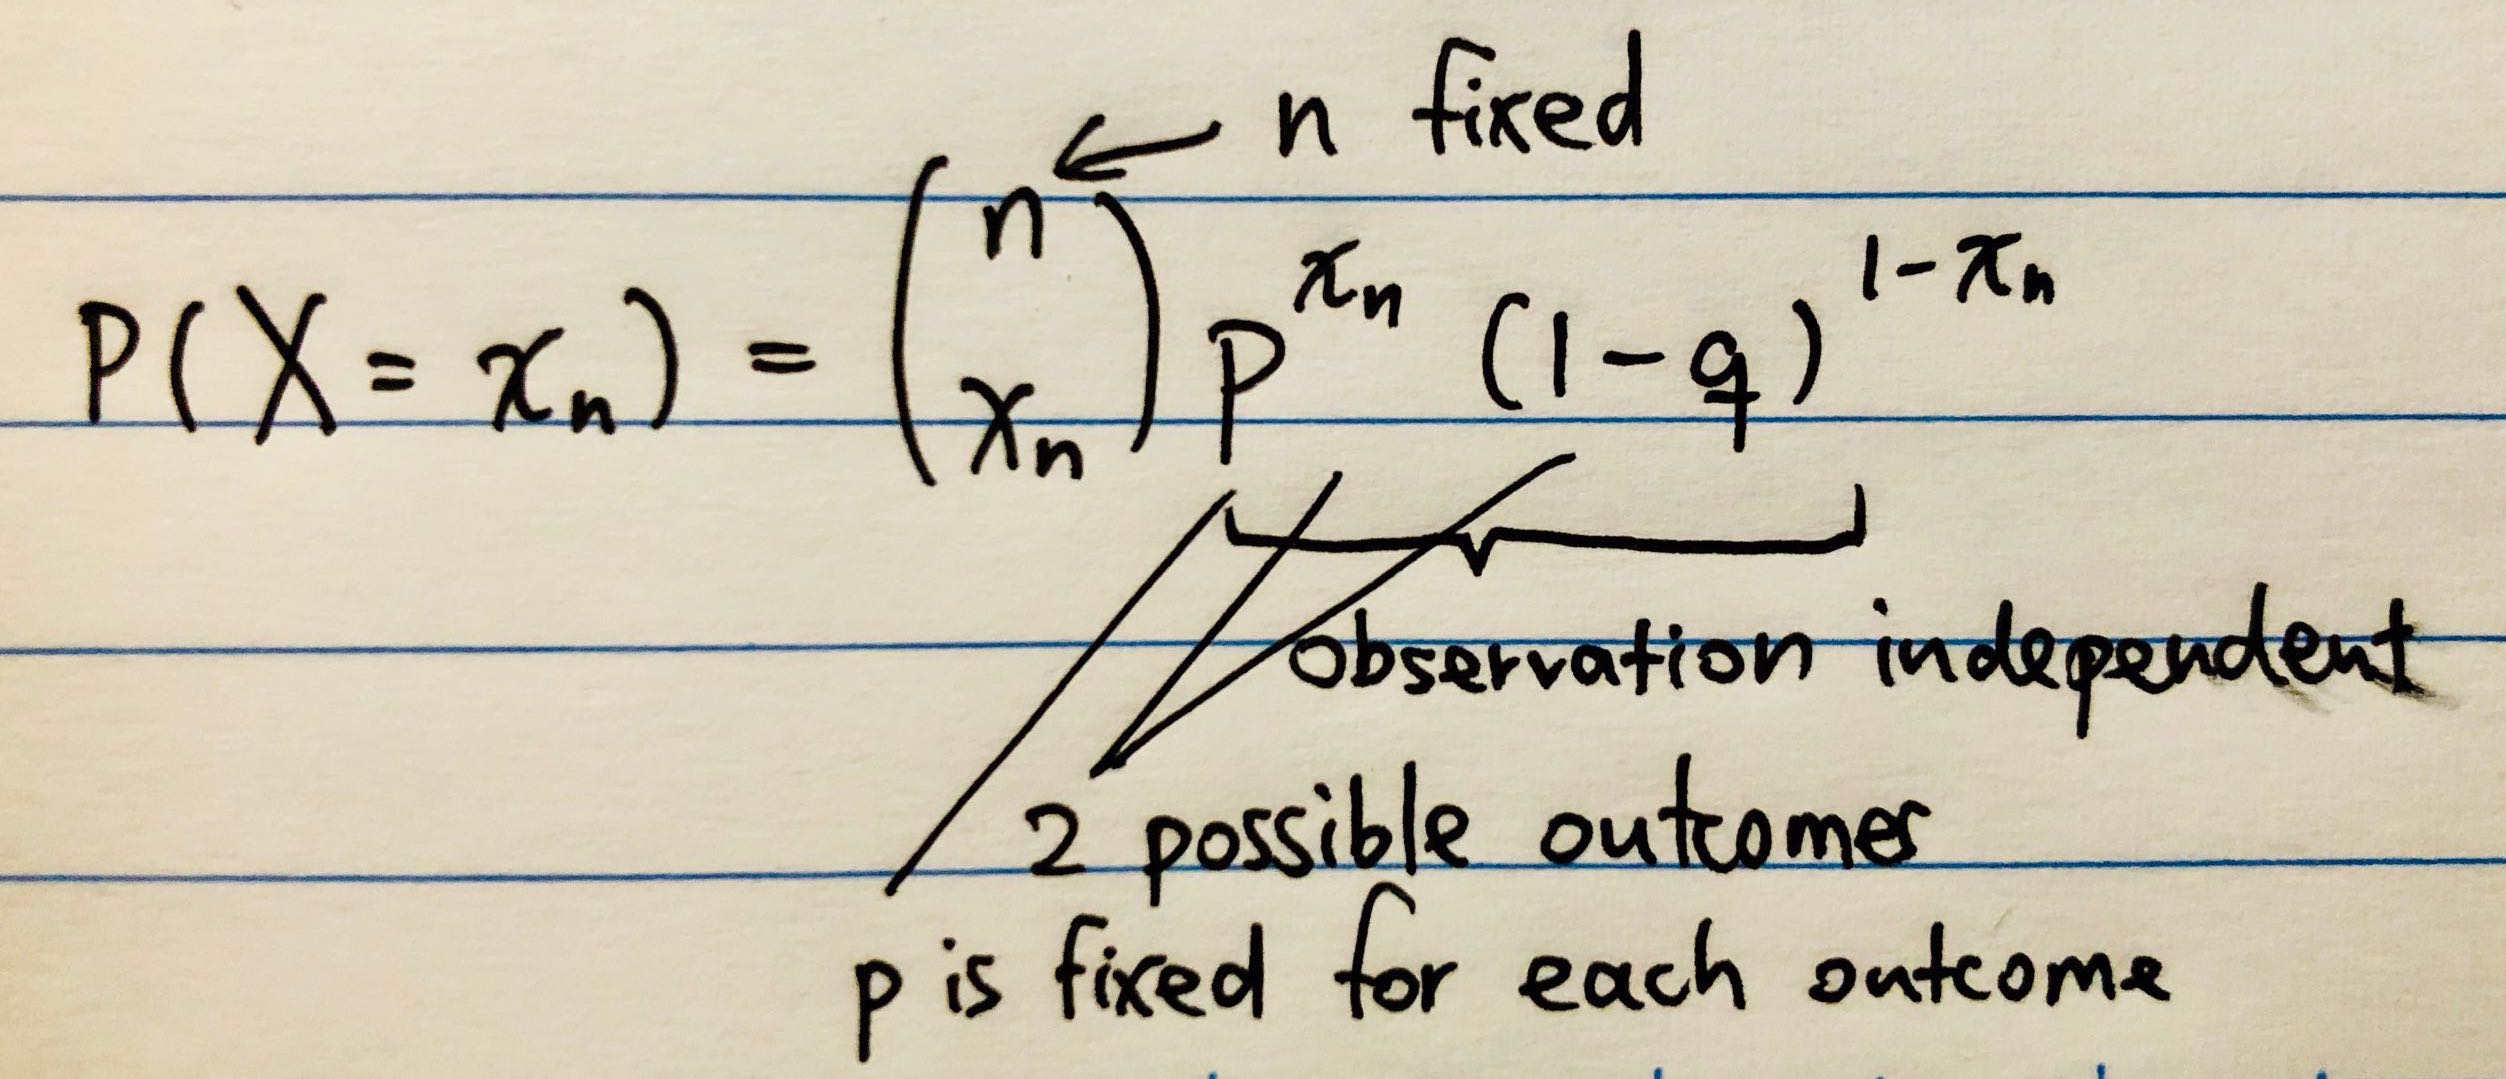 n fixed
P(X = xₙ) = (n xₙ) p^xₙ (1-q)^1-xₙ
observation independent
2 possible outcomes
p is fixed for each outcome